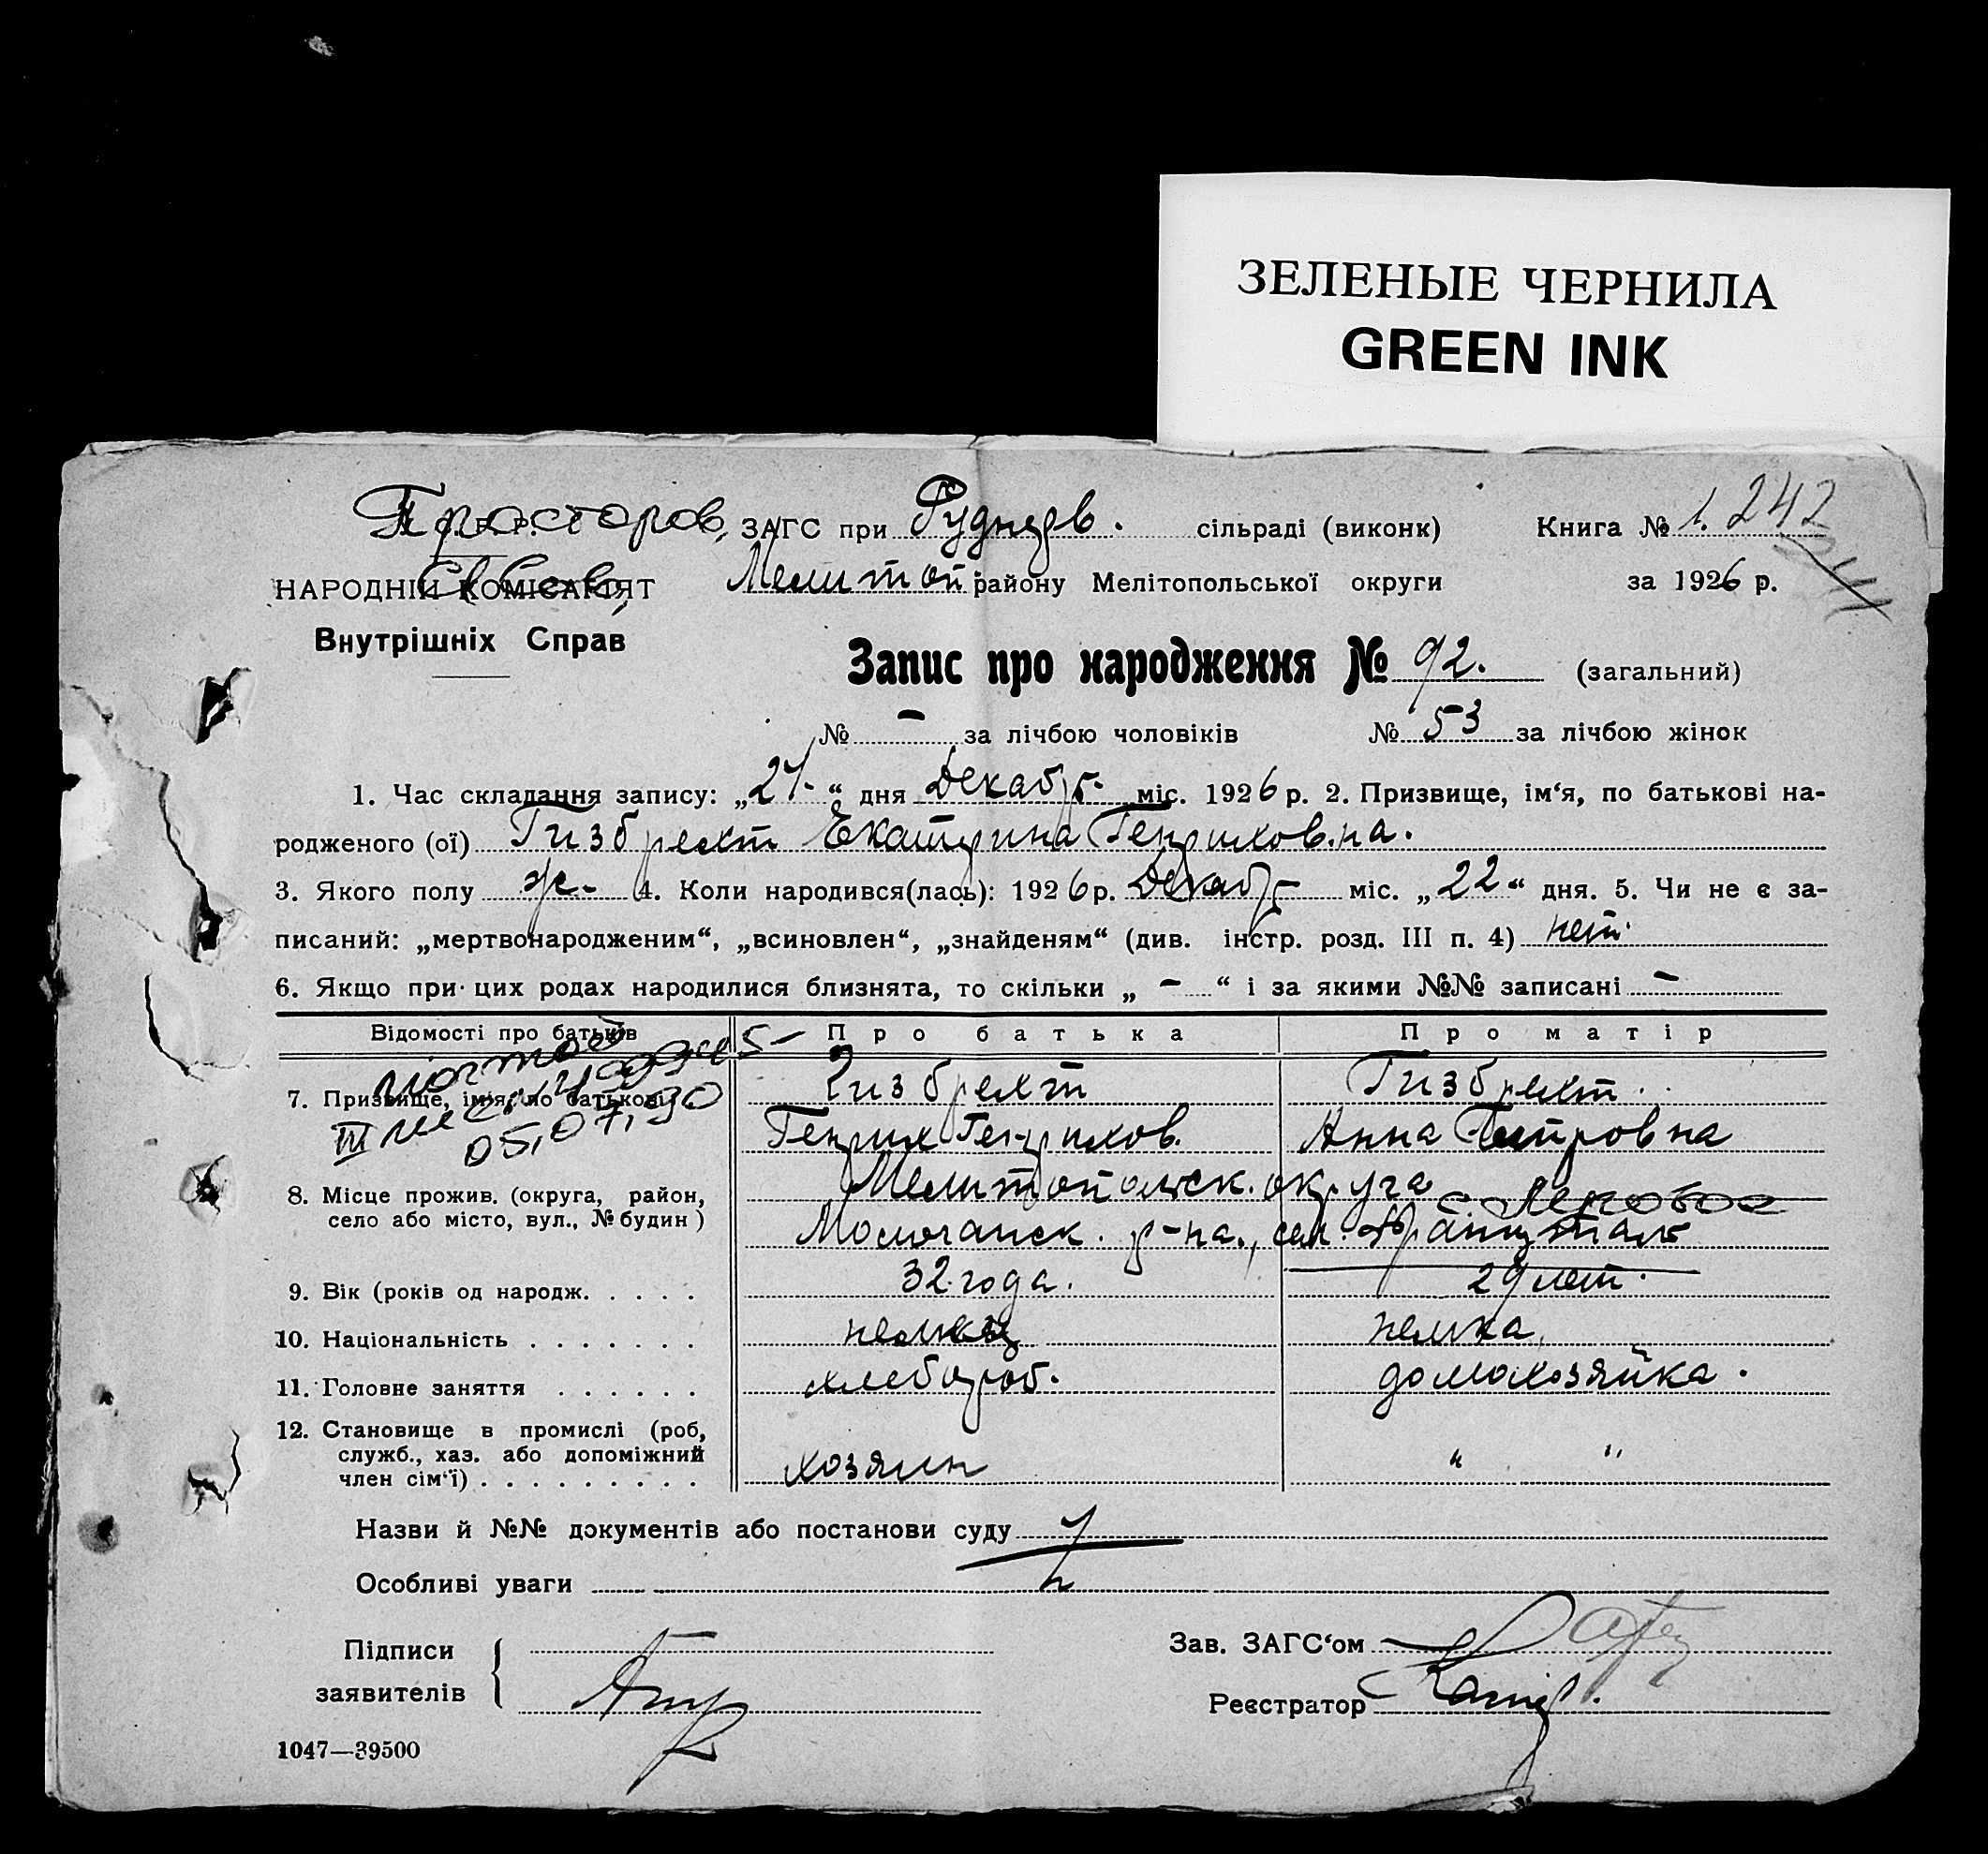 ЗЕЛЕНЫЕ ЧЕРНИЛА
GREEN INK
Просторов, ЗАГС при Руднерв. сільраді (виконк) Книга № 1. 242
НАРОДНІЙ КОМІСАРІЯТ Мелитоп. району Мелітопольської округи за 1926 р.
Внутрішніх Справ
Запис про народження № 92. (загальний)
№ – за лічбою чоловіків № 53 за лічбою жінок
1. Час складання запису: „27.“ дня Декабр. міс. 1926 р. 2. Призвище, ім‘я, по батькові на-
родженого (ої) Гизбрехт Екатерина Генриховна.
3. Якого полу ж. 4. Коли народився(лась): 1926 р. Декабр міс. „22“ дня. 5. Чи не є за-
писаний: „мертвонародженим“, „всиновлен“, „знайденям“ (див. інстр. розд. III п. 4) нет.
6. Якщо при цих родах народилися близнята, то скільки „ – “ і за якими №№ записані –
Відомості про батьків Про батька Про матір
7. Призвище, ім‘я, по батькові Гизбрехт Гизбрехт.
05,07,30 Генрих Генрихов. Анна Петровна
8. Місце прожив. (округа, район, Мелитопольск. округа
село або місто, вул., № будин) Молочанск. р-на., сел. Францталь
9. Вік (років од народж. . . . . 32 года. 29 лет.
10. Національність . . . . . . . немец немка
11. Головне заняття . . . . . . хлебороб. домохозяйка.
12. Становище в промислі (роб,
служб., хаз. або допоміжний
член сім‘ї) . . . . . . . . . хозяин " "
Назви й №№ документів або постанови суду
Особливі уваги
Підписи Зав. ЗАГС‘ом
заявителів Реєстратор
1047—39500